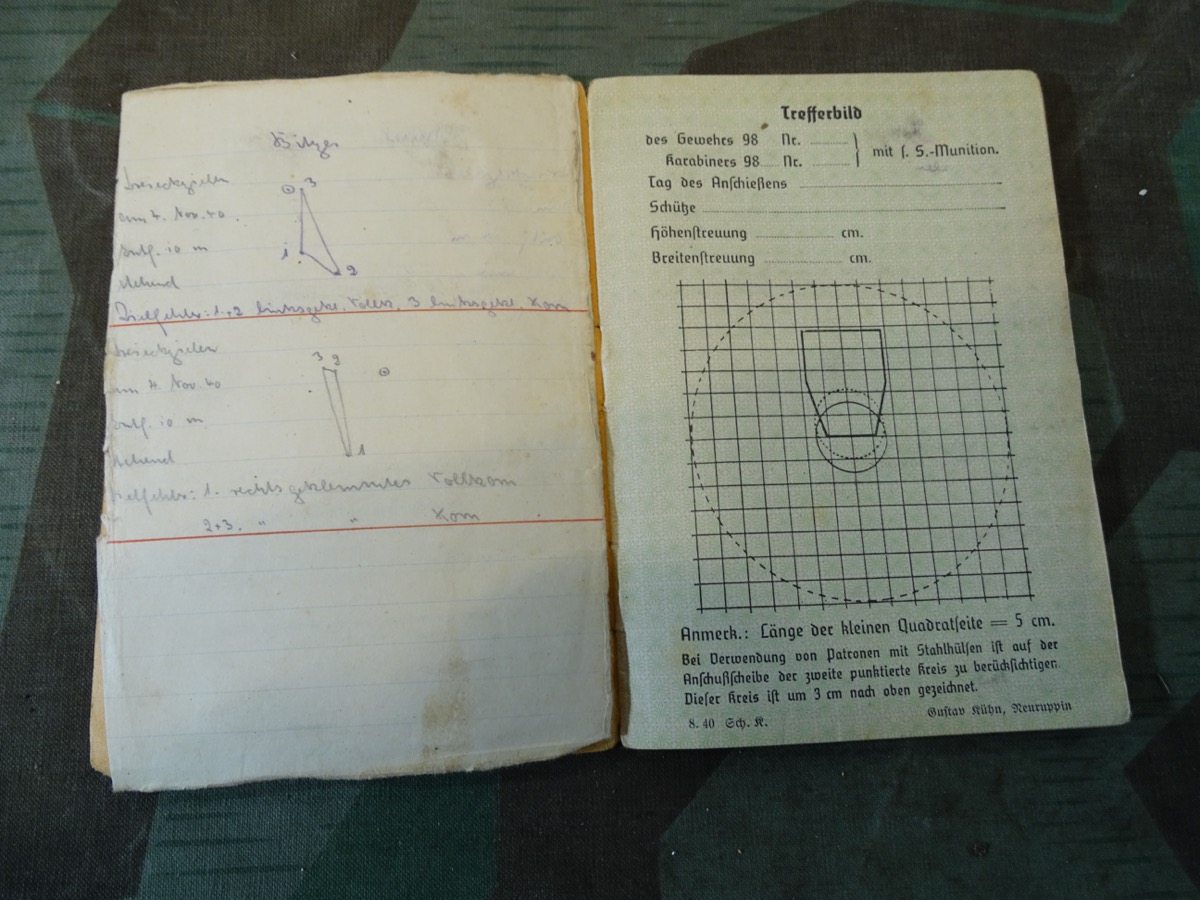 Dreieckzielen
3
am 4. Nov. 40.
Entf. 10 m
1.
2
stehend
Zielfehler: 1.+2 linksgekl. Vollk., 3 linksgekl. Korn
Dreieckzielen
3 2
am 4. Nov. 40
Entf. 10 m
1
stehend
Zielfehler: 1. rechtsgeklemmtes Vollkorn
2+3. " " Korn
Trefferbild
des Gewehrs 98 Nr.
Karabiners 98 Nr.
} mit ſ. S.-Munition.
Tag des Anſchießens
Schütze
Höhenſtreuung cm.
Breitenſtreuung cm.
Anmerk.: Länge der kleinen Quadratſeite = 5 cm.
Bei Verwendung von Patronen mit Stahlhülſen iſt auf der
Anſchußſcheibe der zweite punktierte Kreis zu berückſichtigen.
Dieſer Kreis iſt um 3 cm nach oben gezeichnet.
8. 40 Sch. K.
Guſtav Kühn, Neuruppin